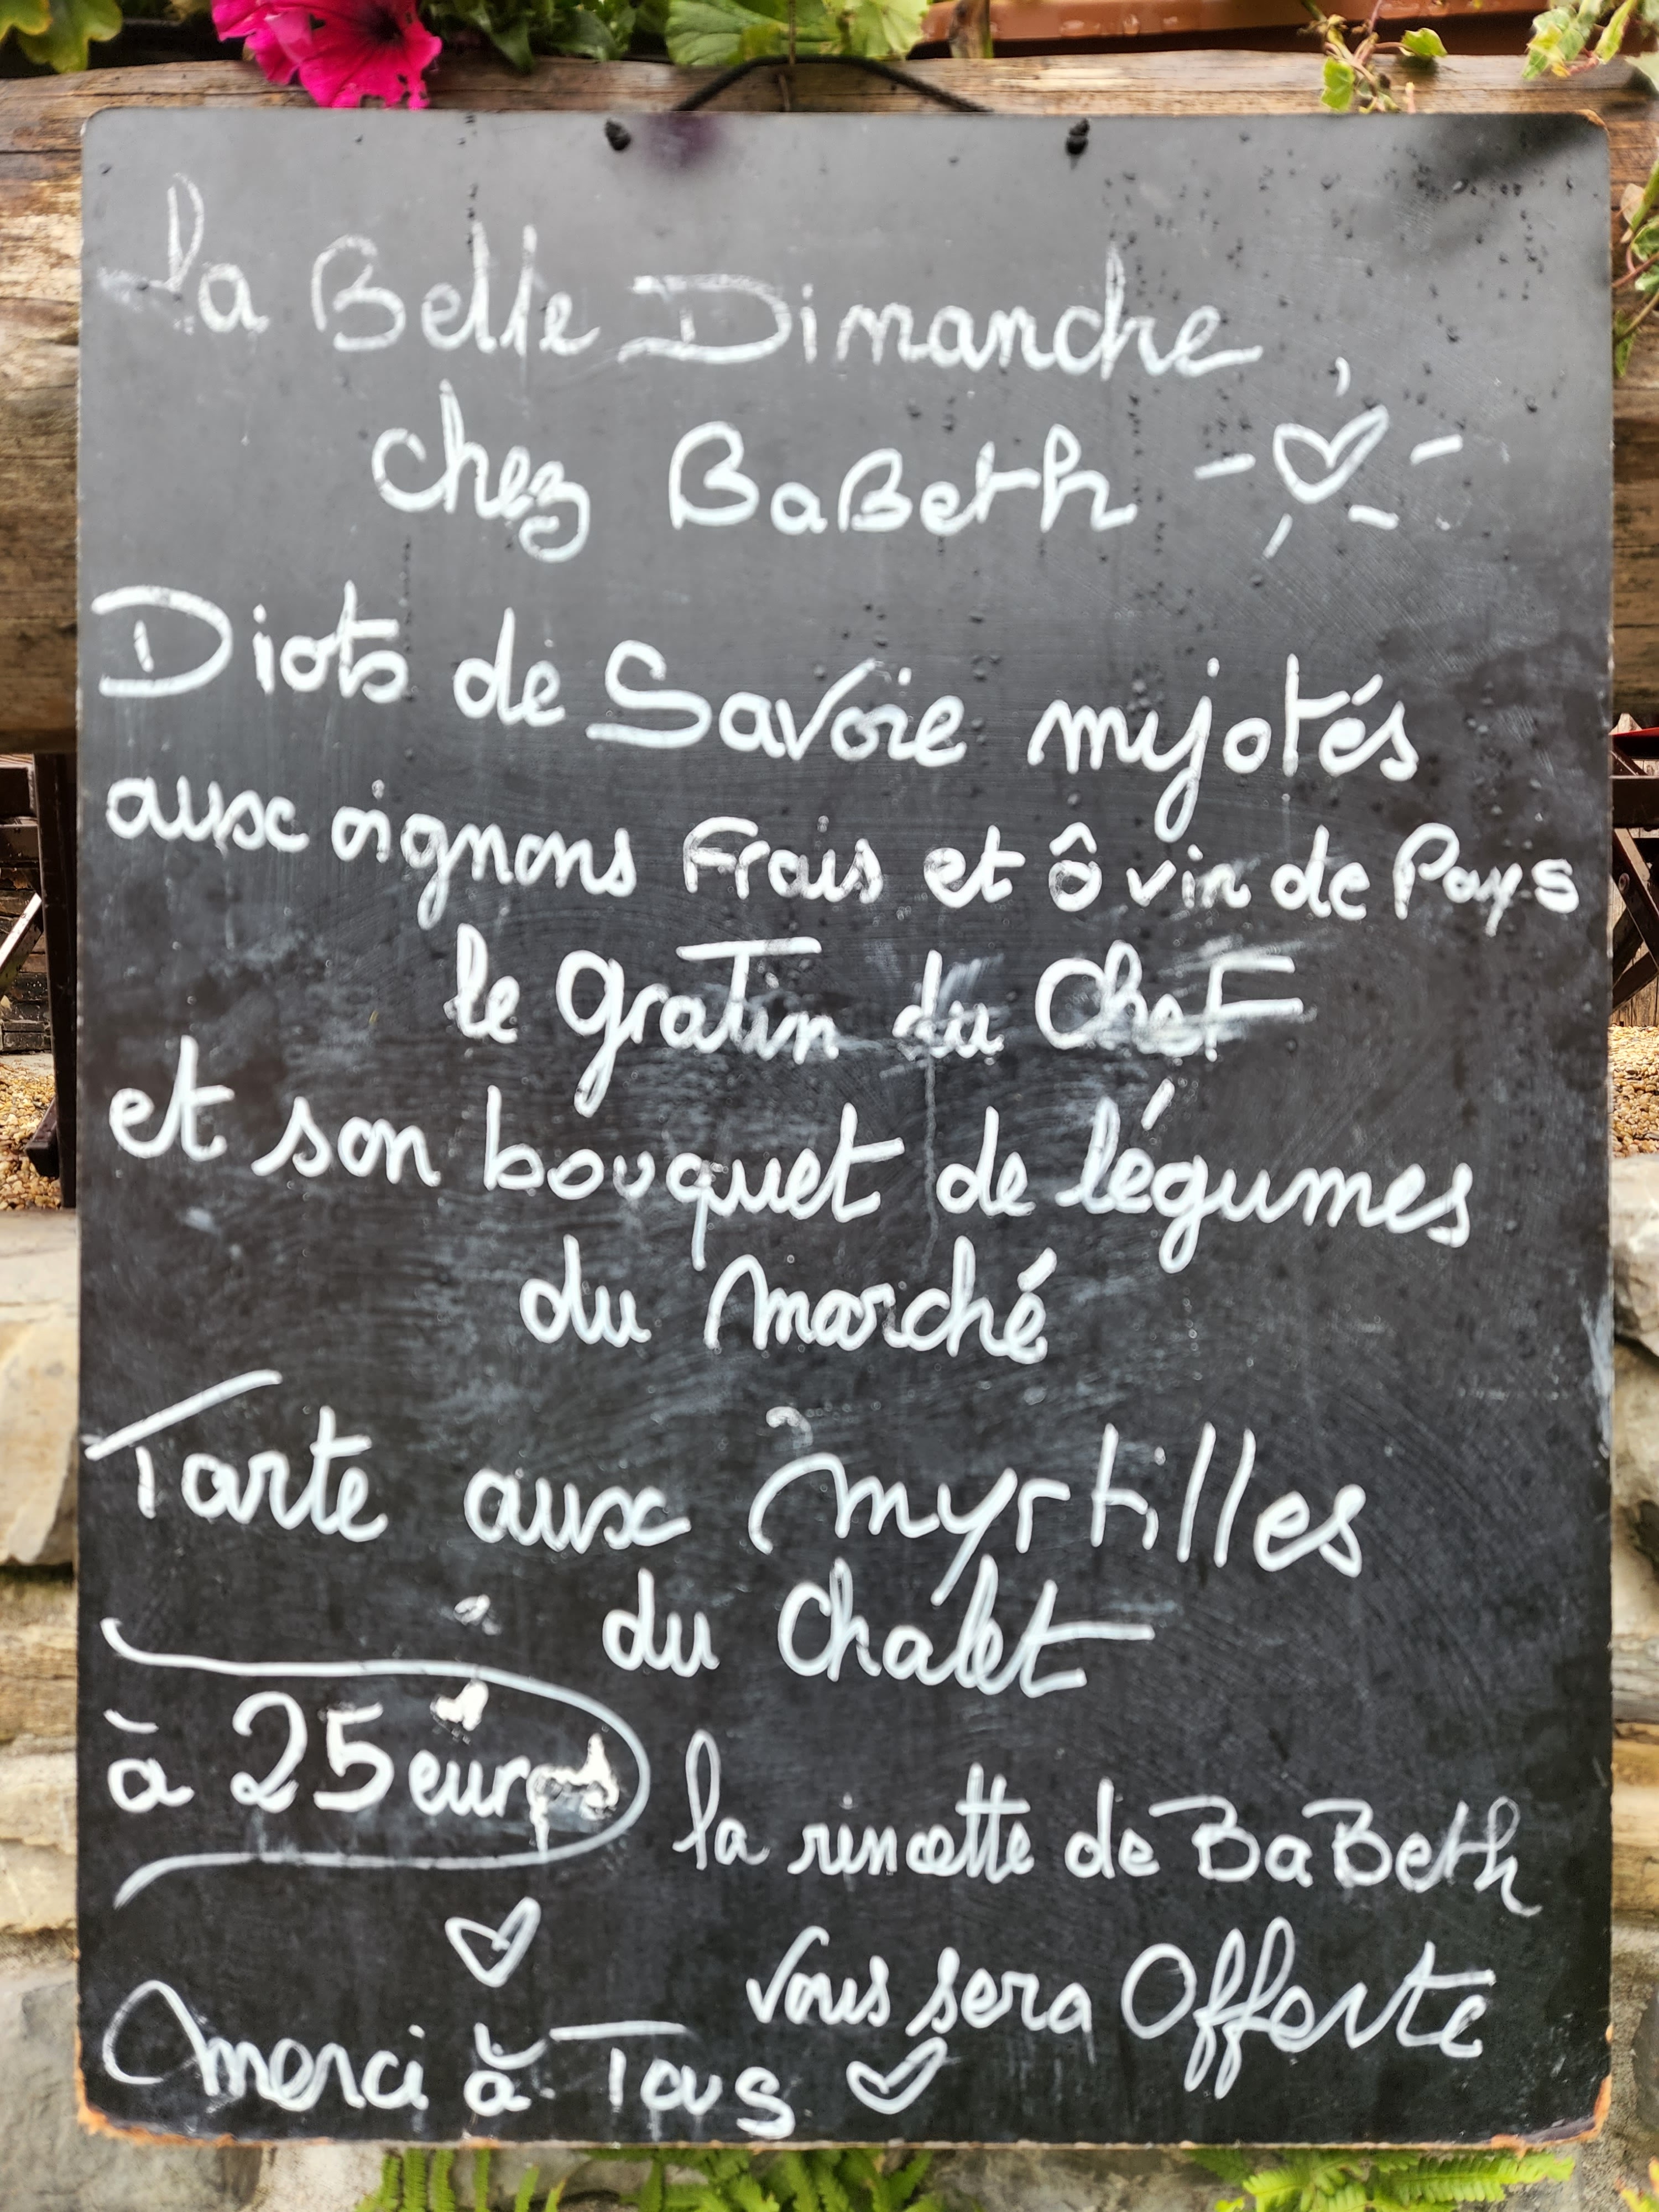 La Belle Dimanche
chez BaBeth
Diots de Savoie myjotés
aux oignons Frais et ô vin de Pays
le gratin du Chef
et son bouquet de légumes
du Marché
Tarte aux Myrtilles
du Chalet
à 25 euros
la rincette de BaBeth
vous sera Offerte
Merci à Tous